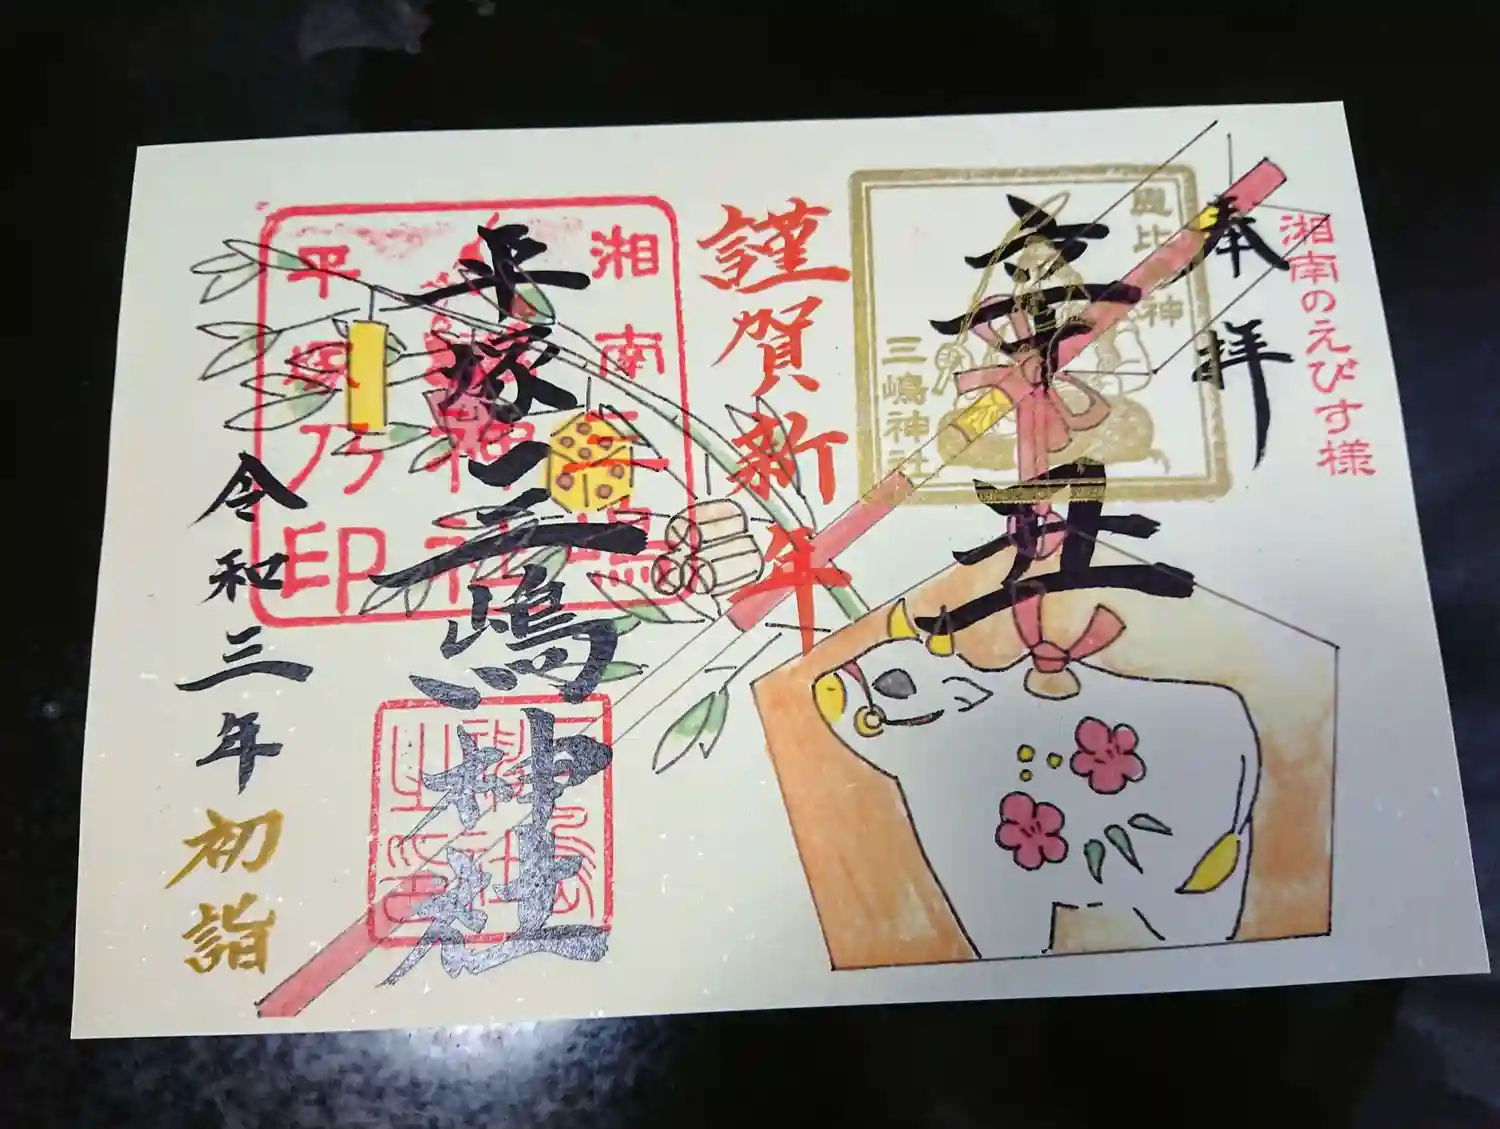 湘南のえびす様
奉拝
辛丑
三嶋神社
謹賀新年
湘南三嶋
神社
平塚乃印
平塚三嶋神社
令和三年初詣